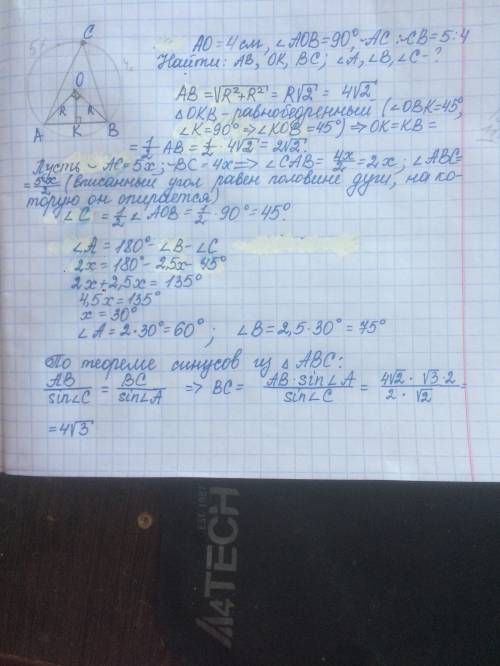 C
5x
4x
O
R R
A K B
AO = 4 см, ∠AOB = 90°, ◡AC : ◡CB = 5:4
Найти: AB, OK, BC; ∠A, ∠B, ∠C - ?
AB = √R²+R² = R√2 = 4√2
△OKB - равнобедренный (∠OBK = 45°,
∠K = 90° ⇒ ∠KOB = 45°) ⇒ OK = KB =
= 1/2 AB = 1/2 · 4√2 = 2√2.
Пусть ◡AC = 5x; ◡BC = 4x ⇒ ∠CAB = 4x/2 = 2x; ∠ABC =
= 5x/2 (вписанный угол равен половине дуги, на ко-
торую он опирается)
∠C = 1/2 ∠AOB = 1/2 · 90° = 45°.
∠A = 180° - ∠B - ∠C
2x = 180° - 2,5x - 45°
2x + 2,5x = 135°
4,5x = 135°
x = 30°
∠A = 2·30° = 60° ; ∠B = 2,5·30° = 75°
По теореме синусов из △ABC:
AB/sin∠C = BC/sin∠A ⇒ BC = AB·sin∠A/sin∠C = 4√2 · √3·2/2 · √2 =
= 4√3
A4TECH
EST.1987